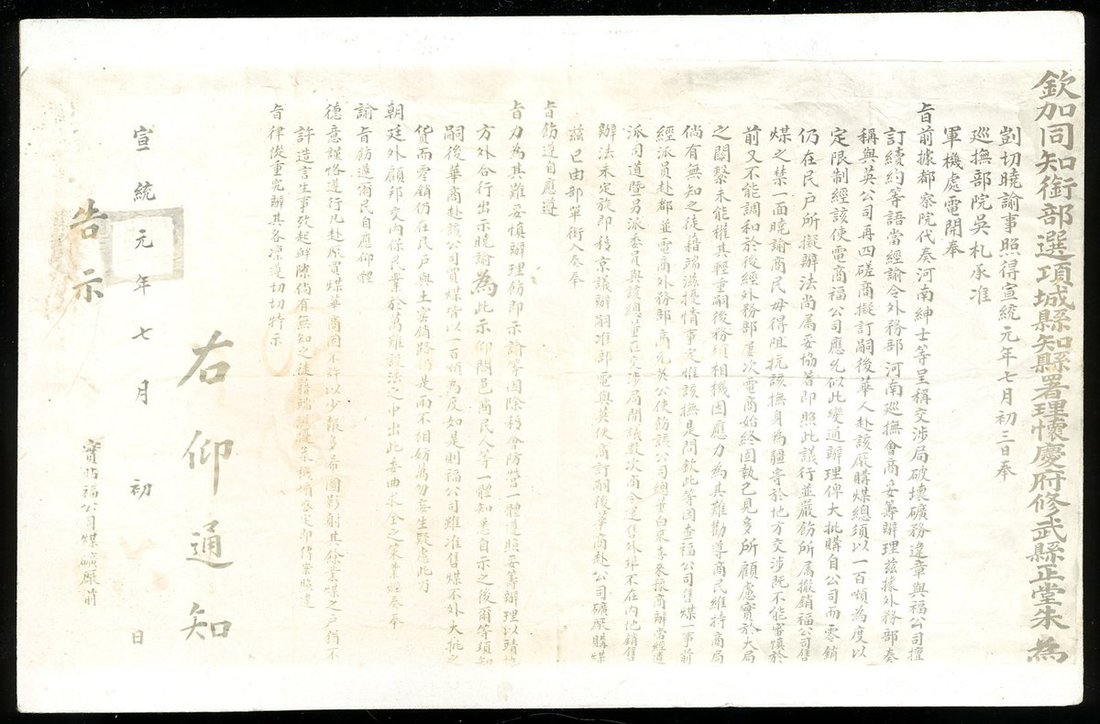 欽加同知銜部選項城縣知縣署理懷慶府修武縣正堂朱 為
剴切曉諭事照得宣統元年七月初三日奉
巡撫部院吳札承准
軍機處電開奉
旨前據都察院代奏河南紳士等呈稱交涉局破壞礦務違章與福公司擅
訂續約等語當經諭令外務部河南巡撫會商妥籌辦理茲據外務部奏
稱與英公司再四磋商擬訂嗣後華人赴該厰購煤總須以一百噸為度以
定限制經該使電商福公司應允似此變通辦理俾大批購自公司而零銷
仍在民戶所擬辦法尚屬妥協著即照此議行並嚴飭所屬撤銷福公司售
煤之禁一面曉諭商民毋得阻抗該撫身為疆寄於地方交涉既不能審慎於
前又不能調和於後經外務部屢次電商始終固執己見多所顧慮實於大局
之關繫未能權其輕重嗣後務須相機因應力為其難勸導商民維持商局
倘有無知之徒藉端滋擾情事定惟該撫是問欽此等因查福公司售煤一事前
經派員赴都並電商外務部商允英公使飭該公司總董白萊喜來豫商辦當經遴
派司道暨另派委員與該總董在交涉局開議數次
辦法未定放即移京議辦嗣准部電與英使商訂嗣後華商赴公司礦厰購煤
茲已由部單銜入奏奉
旨飭遵自應遵
旨力為其難妥慎辦理飭即示諭等因除移會防營一體遵照妥籌辦理以靖地
方外合行出示曉諭為此示仰闔邑商民人等一體知悉自示之後爾等須知
嗣後華商赴該公司買煤皆以一百噸為度如是則福公司雖准售煤不外大批之
貨而零銷仍在民戶與土窰銷路仍是而不相妨萬勿妄生疑慮此乃
朝廷外顧邦交內保民業於萬難設法之中出此委曲求全之策業經奉
諭旨飭遵爾民自應仰體
德意謹恪遵行凡赴厰買煤華商固不許以少報多希圖影射其餘業煤之戶猶不
許造言生事致起衅隙倘有無知之徒藉端
旨律從重究辦其各凜遵切切特示
右仰通知
宣統元年七月初 日
告示
實貼福公司煤礦厰前